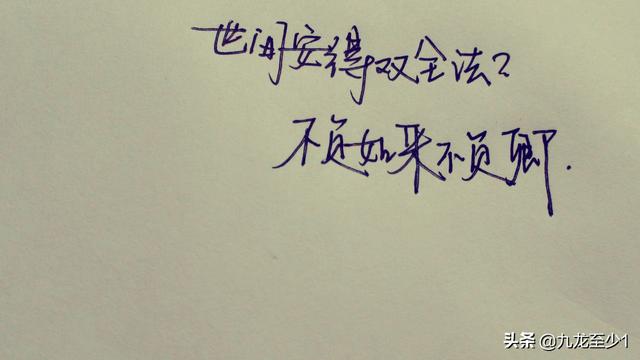 世间安得双全法?
不负如来不负卿.
头条 @九龙至少1